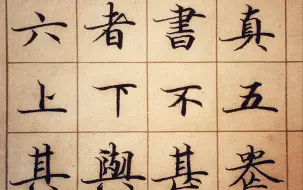 真五
書不
者下與
六上其